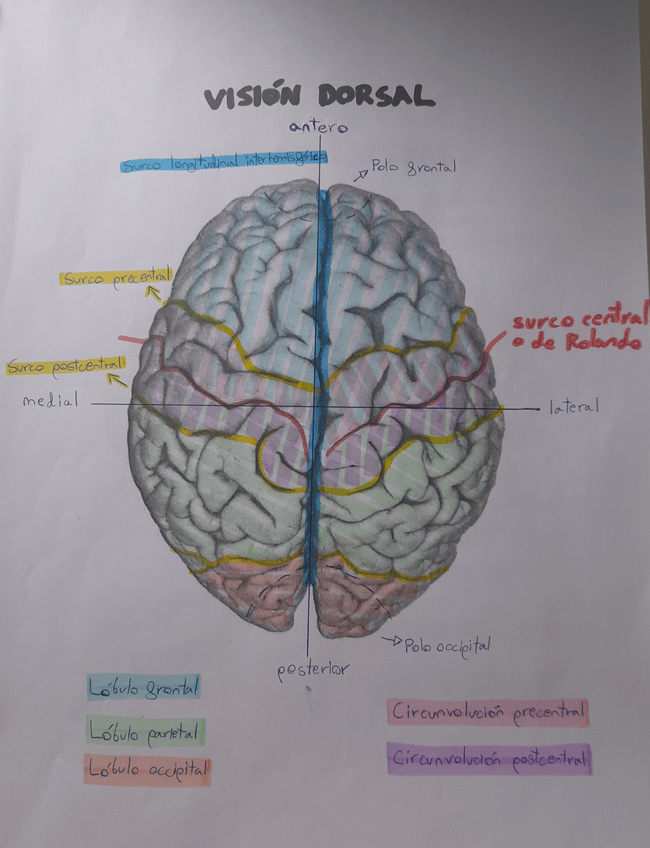 VISIÓN DORSAL
antero
Surco longitudinal interhemisférico
Polo frontal
Surco precentral
surco central
o de Rolando
Surco postcentral
medial
lateral
Polo occipital
posterior
Lóbulo frontal
Lóbulo parietal
Lóbulo occipital
Circunvolución precentral
Circunvolución postcentral